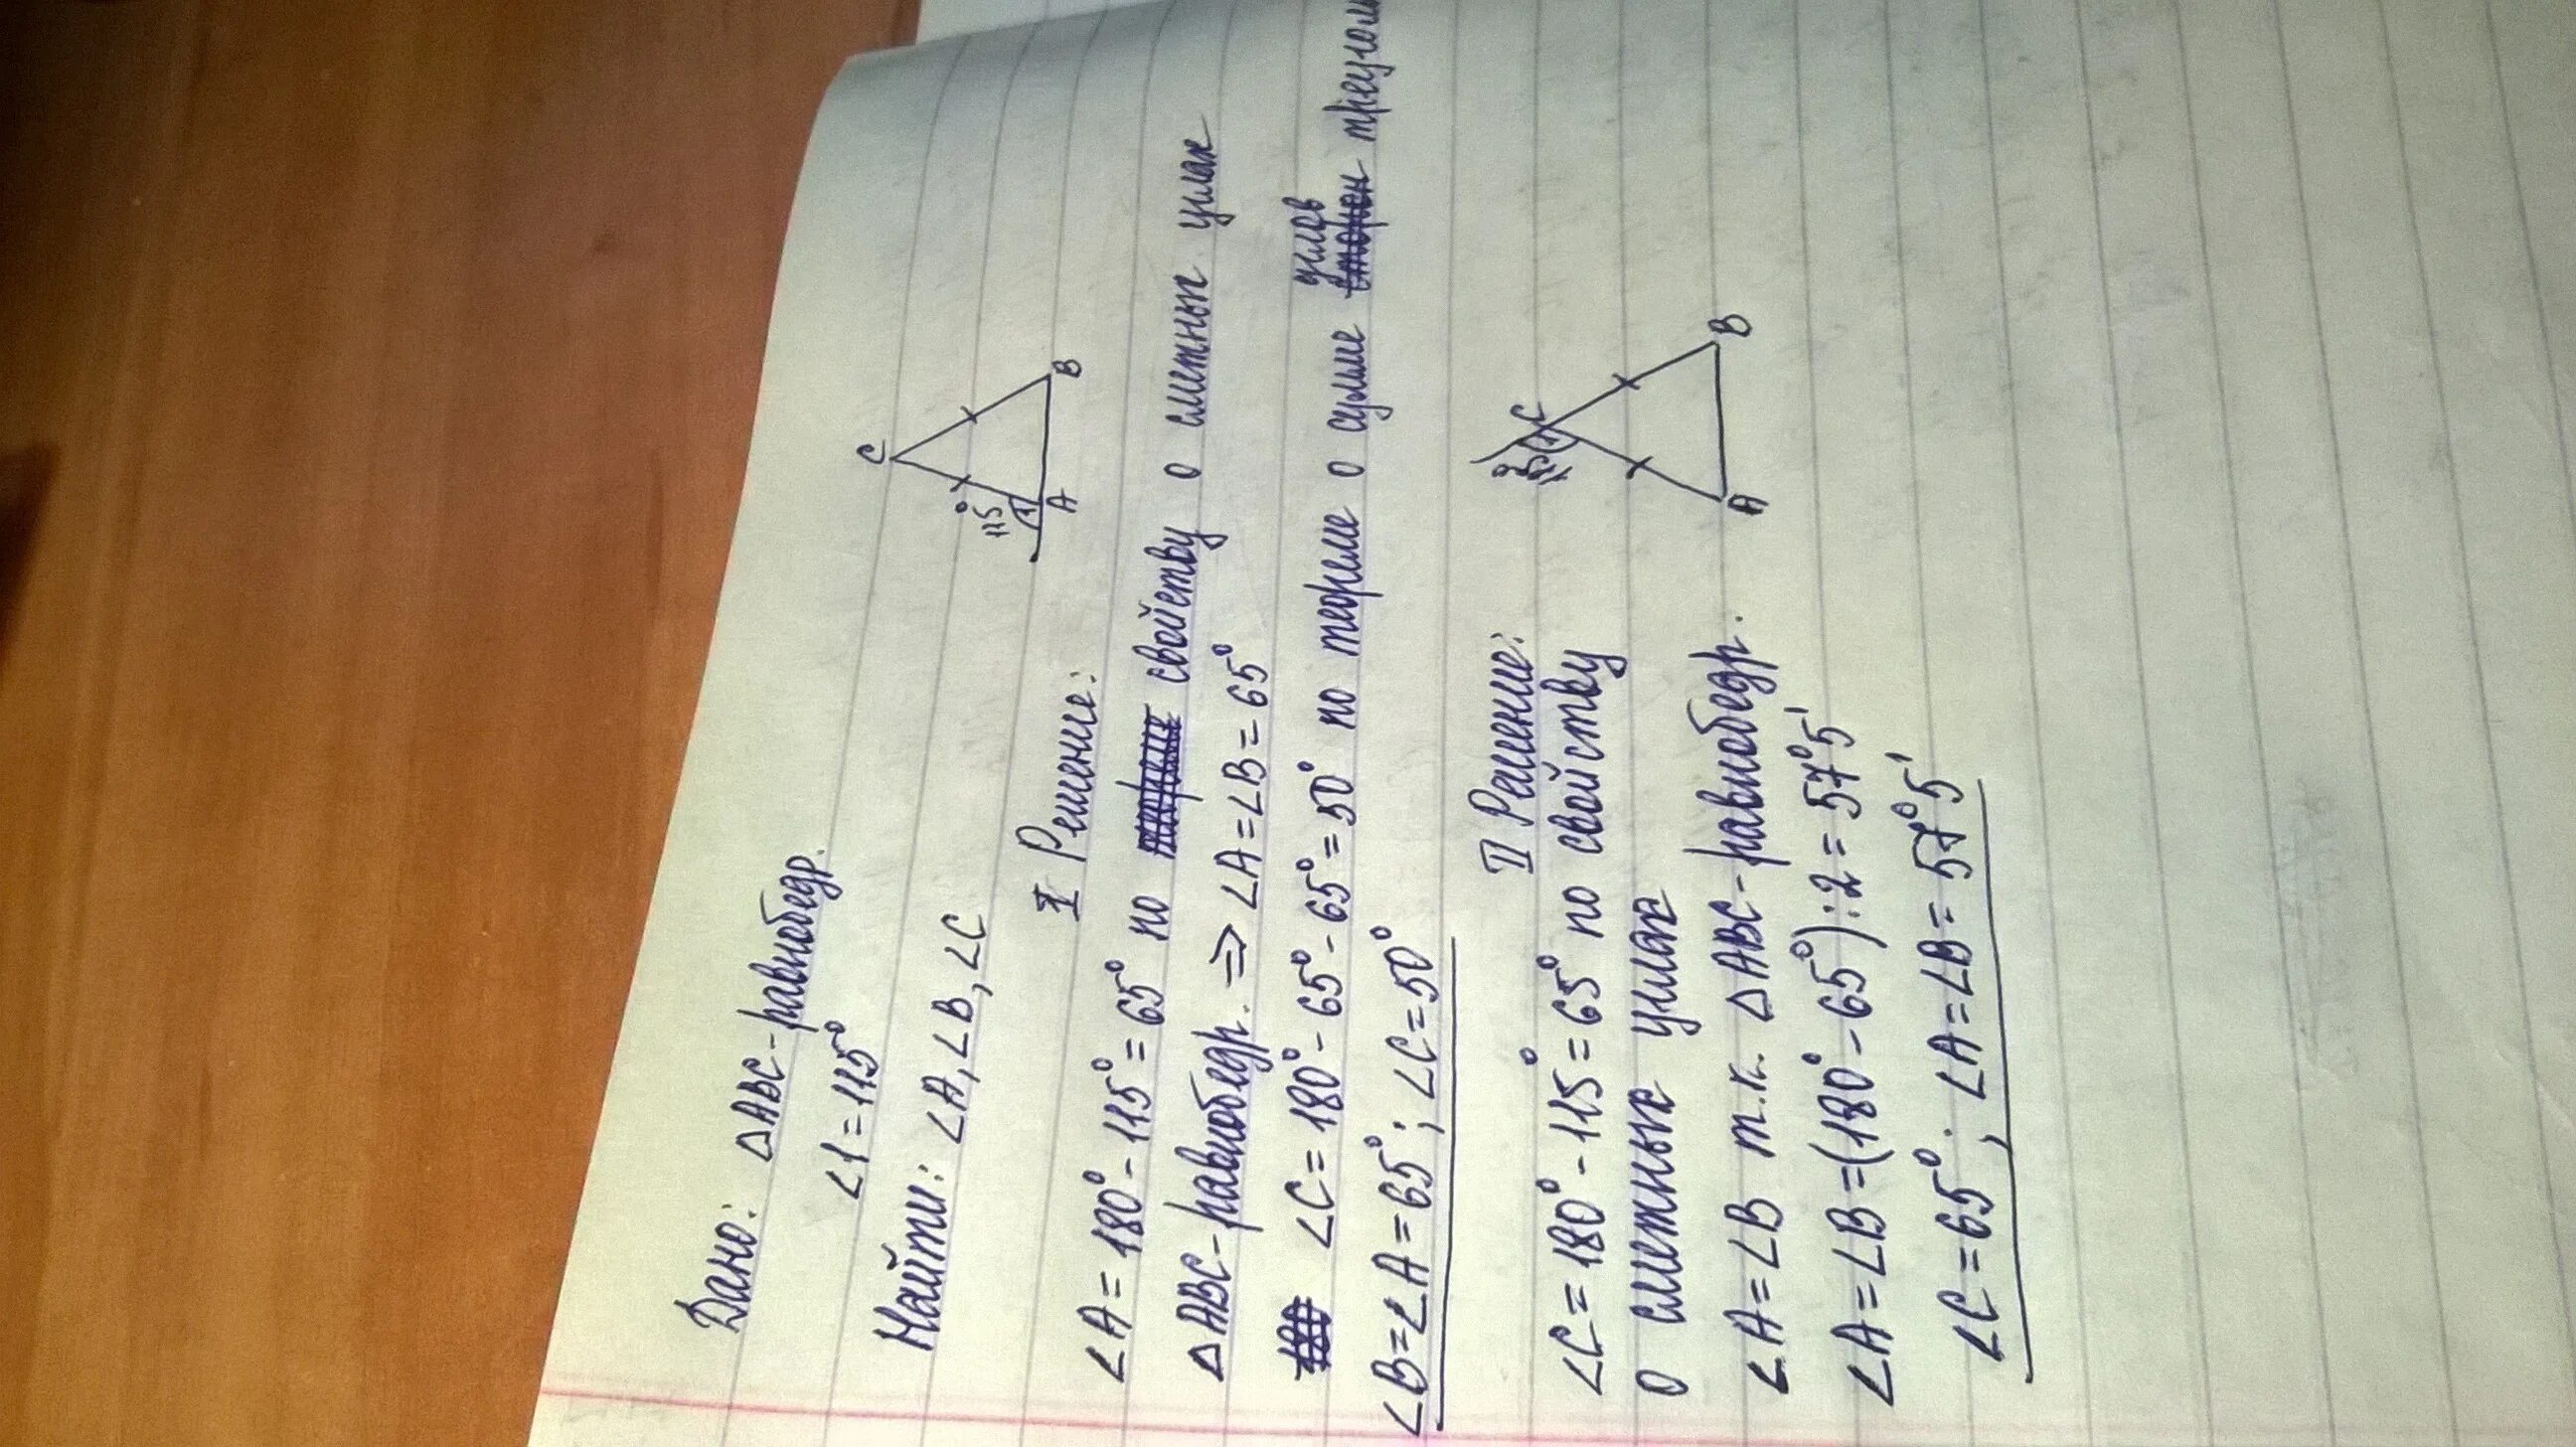 Дано: △ABC-равнобедр.
∠1=115°
Найти: ∠A, ∠B, ∠C
C
115°
1
A
B
I Решение:
∠A=180°-115°=65° по свойству о смежных углах
△ABC-равнобедр. ⇒ ∠A=∠B=65°
углов
∠C=180°-65°-65°=50° по теореме о сумме сторон
∠B=∠A=65°; ∠C=50°
II Решение:
115°
1
C
A
B
∠C=180°-115°=65° по свойству
о смежных углах
∠A=∠B т.к. △ABC-равнобедр.
∠A=∠B=(180°-65°):2=57°5'
∠C=65°; ∠A=∠B=57°5'